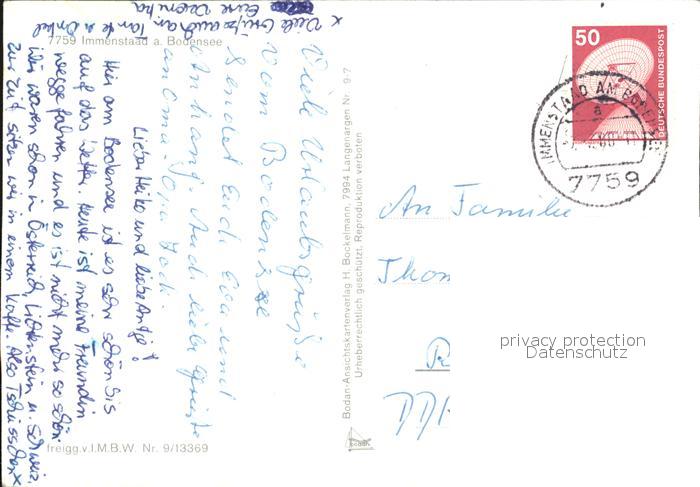 7759 Immenstaad a. Bodensee
Viele Urlaubsgrüße
vom Bodensee
sendet Euch Eva und
Anhang. Auch liebe Grüße
an Oma-Opa Joch.
Lieber Heiko und liebe Antje!
Hier am Bodensee ist es sehr schön bis
auf das Wetter. Heute ist meine Freundin
weggefahren und es ist nicht mehr so schön.
Wir waren schon in Österreich, Lichtenstein u. Schweiz.
Zur Zeit sitzen wir in einem Kaffe. Also Tschüsschen x
x Viele Grüße auch an Tante u. Onkel
Eure
freigg.v.I.M.B.W. Nr. 9/13369
Bodan-Ansichtskartenverlag H. Bockelmann, 7994 Langenargen Nr. 9-7
Urheberrechtlich geschützt, Reproduktion verboten
BODAN
50
DEUTSCHE BUNDESPOST
IMMENSTAAD AM BODENSEE
a
7759
An Familie
Thom
privacy protection
Datenschutz